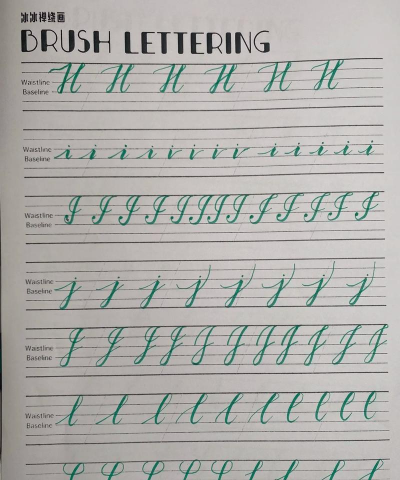 冰冰禅绕画
BRUSH LETTERING
Waistline H H H H H H
Baseline
Waistline i i i i i i i i i i i i i
Baseline
Waistline I I I I I I I I I I I I I
Baseline
Waistline j j j j j j j j
Baseline
Waistline J J J J J J J J J J J
Baseline
Waistline l l l l l l l l l l l
Baseline